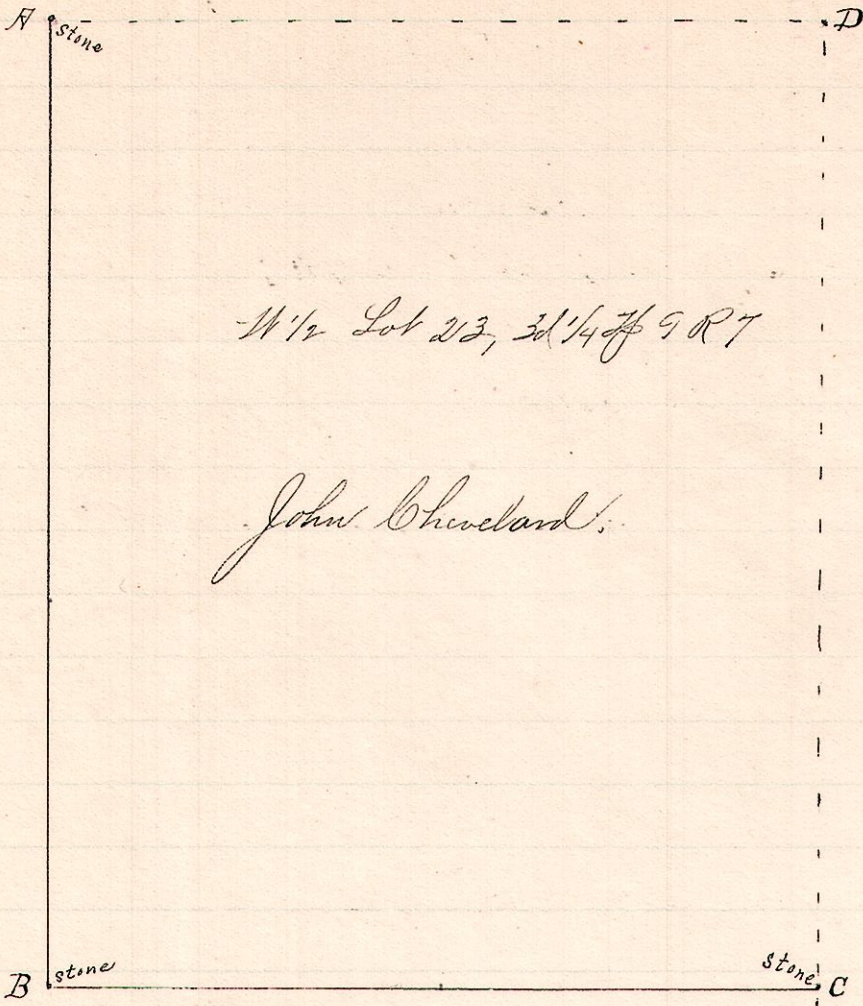 A
stone
D
W 1/2 Lot 23, 3d 1/4 Tp 9 R 7
John Cheveland.
B
stone
stone
C